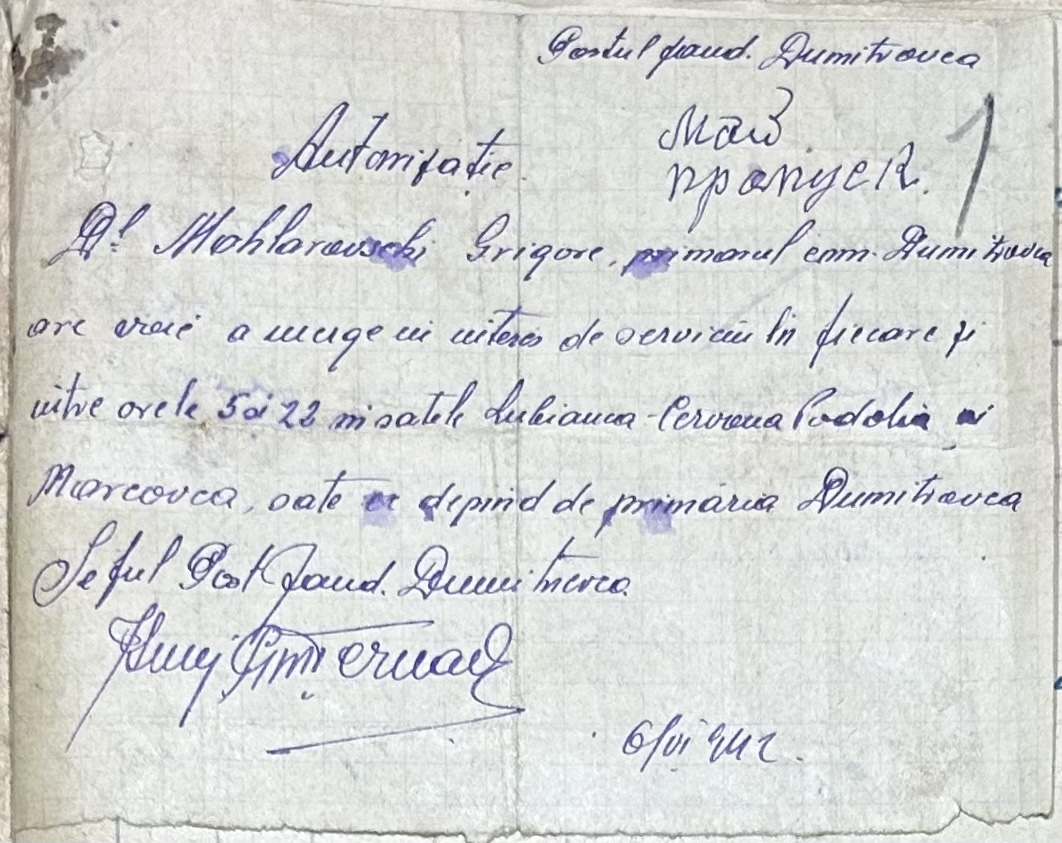 Postul jand. Dumitrovca
Autorizație.
мой
пропуск.
1
Dl Mohlarovschi Grigore, primarul com. Dumitrovca
are voie a merge in interes de serviciu in fiecare zi
intre orele 5 și 22 in satele Lubianca - Cervona Podolia și
Marcovca, sate ce depind de primăria Dumitrovca
Șeful Post Jand. Dumitrovca
6/VI 942.